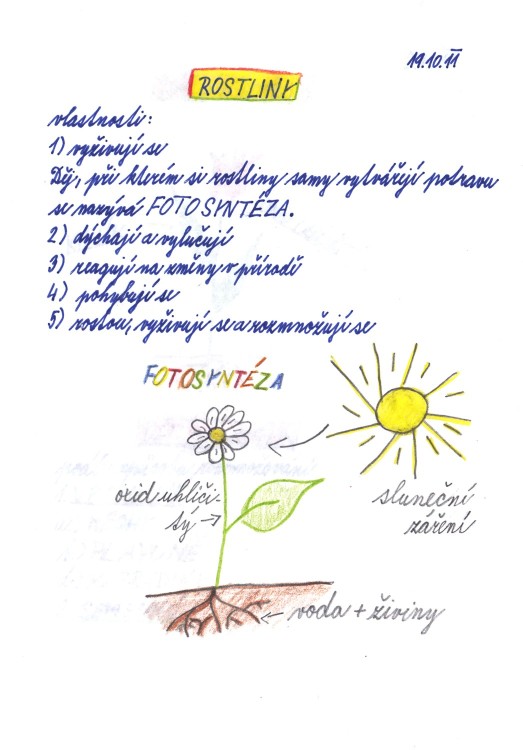 19.10.11
ROSTLINY
vlastnosti:
1) vyživují se
Děj, při kterém si rostliny samy vytvářejí potravu
se nazývá FOTOSYNTÉZA.
2) dýchají a vylučují
3) reagují na změny v přírodě
4) pohybují se
5) rostou, vyživují se a rozmnožují se
FOTOSYNTÉZA
oxid uhliči-
tý
sluneční
záření
voda + živiny